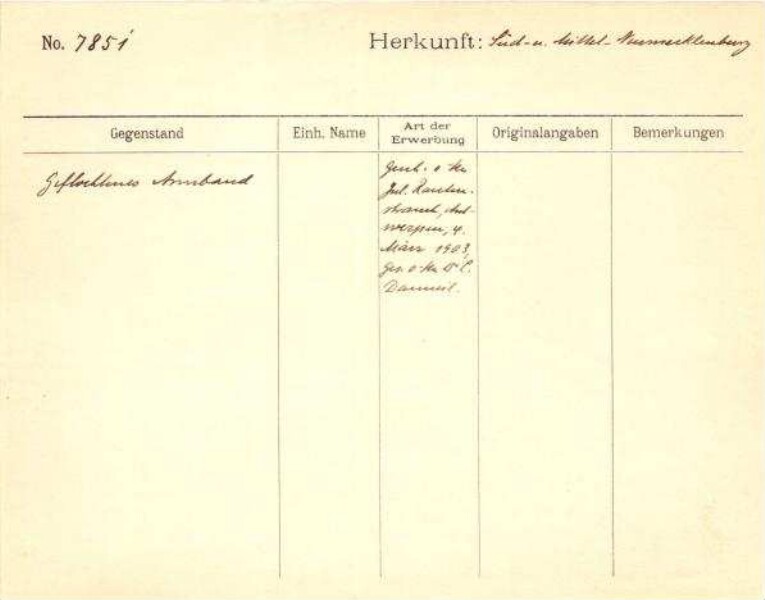 No. 7851
Herkunft: Süd- u. Mittel-Neumecklenburg
Gegenstand
Einh. Name
Art der
Erwerbung
Originalangaben
Bemerkungen
Geflochtenes Armband
Gesch. v. Hn
Jul. Rauten-
strauch, Ant-
werpen, 4.
März 1903,
ges. v. Hn Dr C.
Danneil.